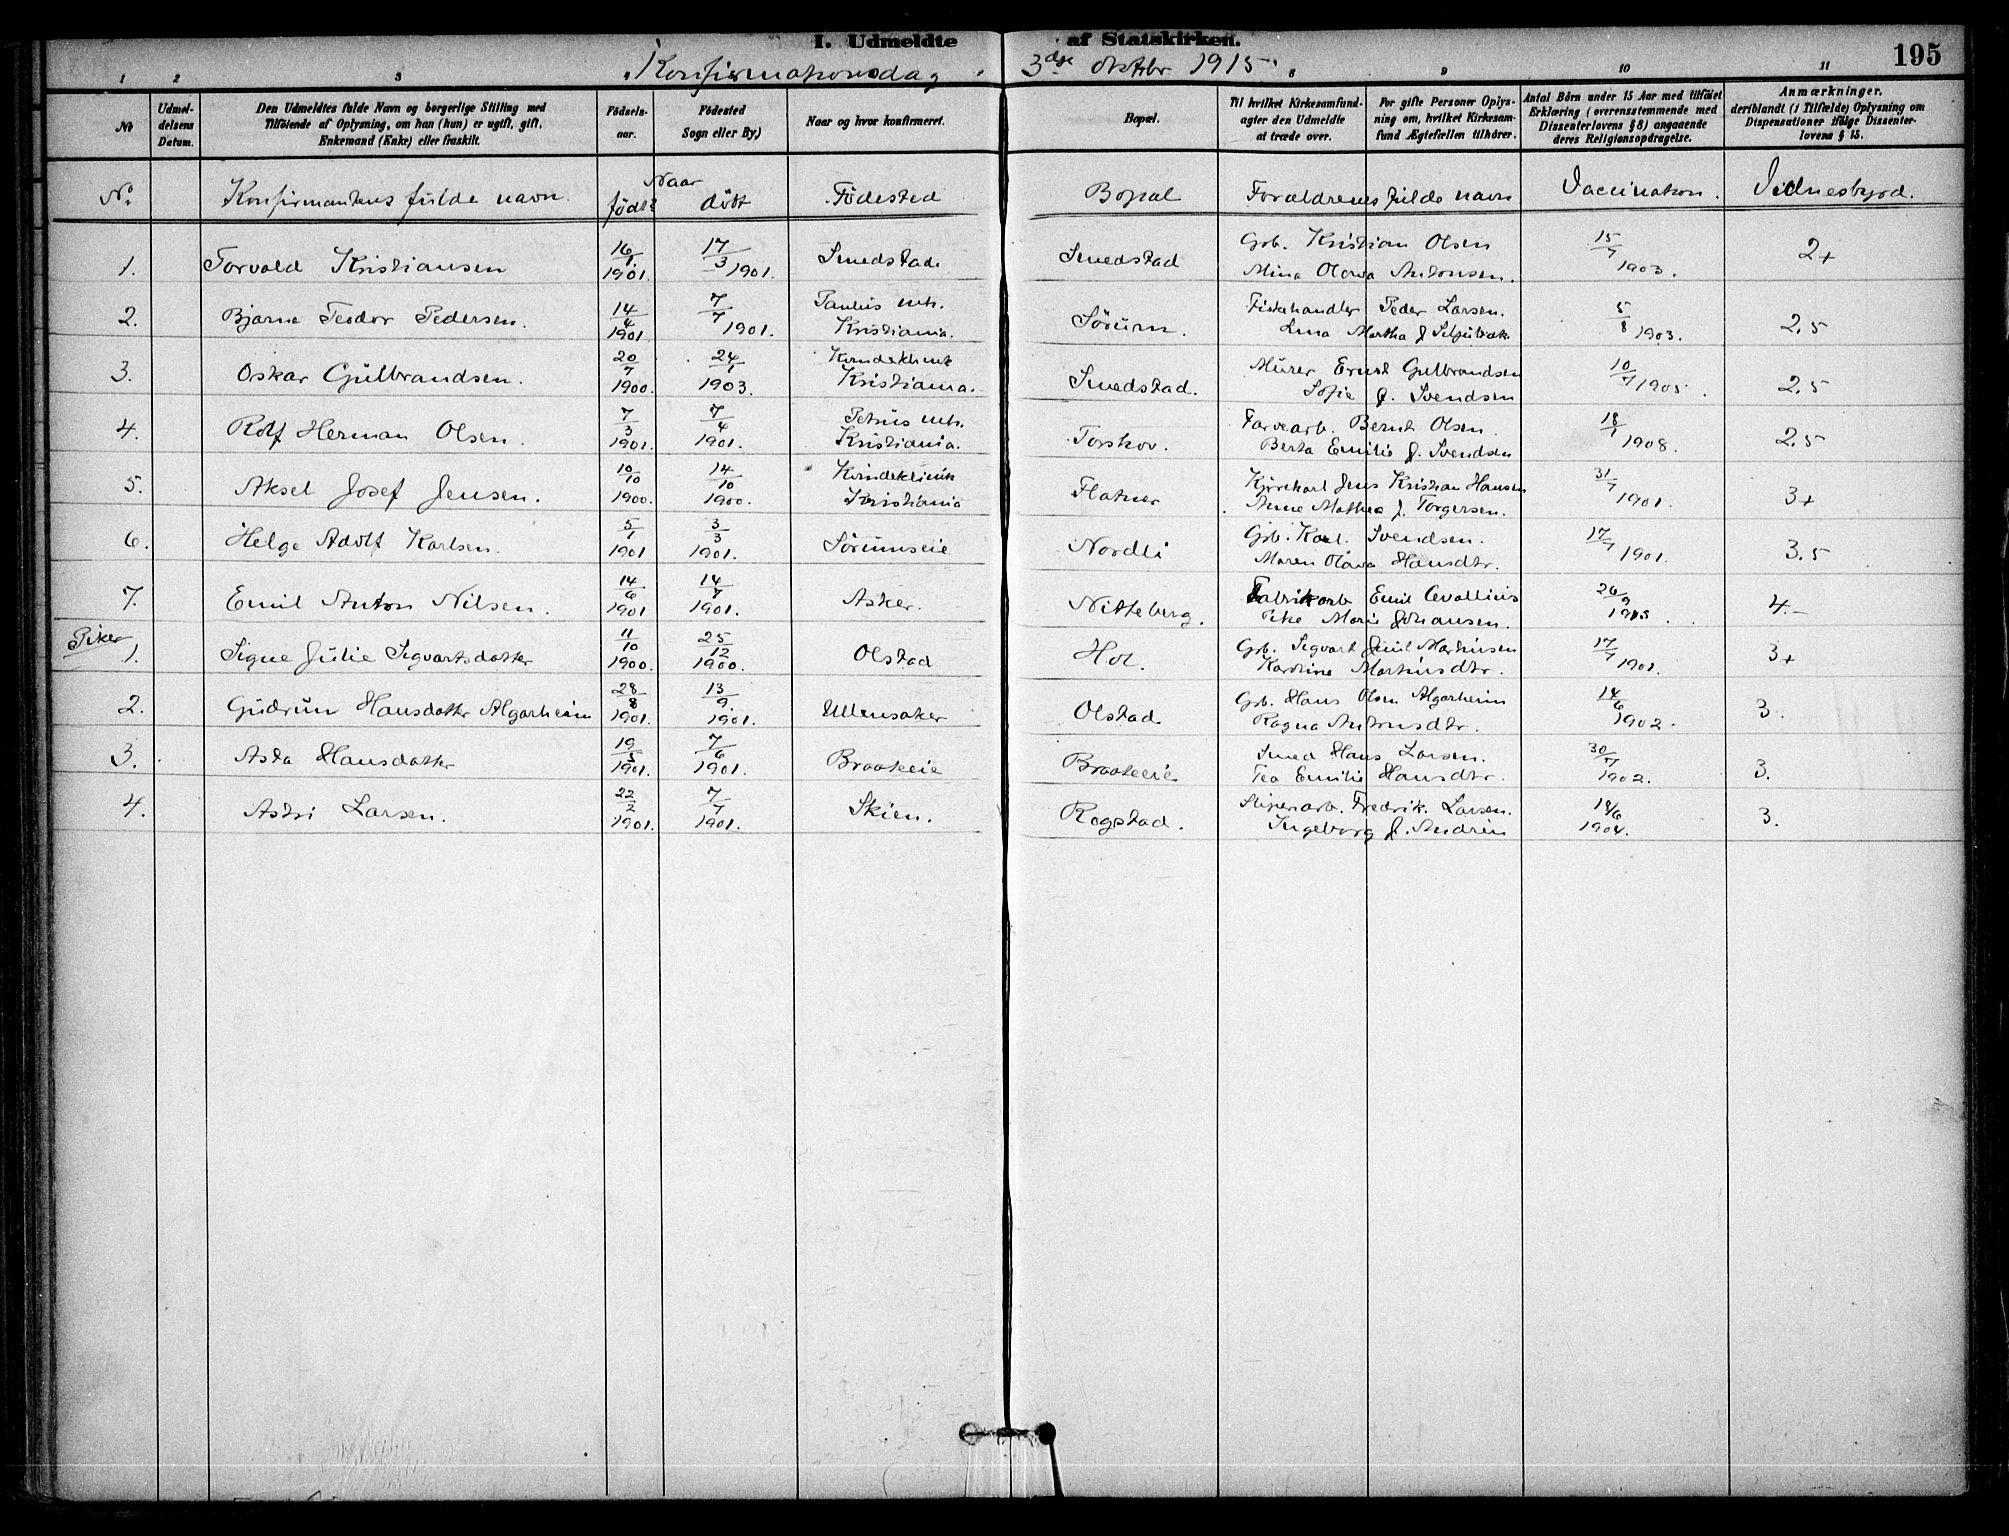 I. Udmeldte af Statskirken.
195
Konfirmationsdag 3dje oktbr 1915.
1 2 3 8 9 10 11
No
Udmel-
delsens
Datum.
Den Udmeldtes fulde Navn og borgerlige Stilling med
Tilføiende af Oplysning, om han (hun) er ugift, gift,
Enkemand (Enke) eller fraskilt.
Fødsels-
aar.
Fødested
Sogn eller By)
Naar og hvor konfirmeret.
Bopæl.
Til hvilket Kirkesamfund-
agter den Udmeldte
at træde over.
For gifte Personer Oplys-
ning om, hvilket Kirkesam-
fund Ægtefællen tilhører.
Antal Børn under 15 Aar med tilføiet
Erklæring (overensstemmende med
Dissenterlovens § 8) angaaende
deres Religionsopdragelse.
Anmærkninger,
deriblandt (i Tilfælde) Oplysning om
Dispensationer ifølge Dissenter-
lovens § 15.
No. Konfirmantens fulde navn. Naar født døbt Fødested Bopæl Forældrenes fulde navn Vaccination. Vidnesbyrd.
1. Torvald Kristiansen 16/1 1901. 17/3 1901. Smedstad. Smedstad Gb. Kristian Olsen 15/7 1903. 2+
Mina Olava Antonsen.
2. Bjarne Teodor Pedersen. 14/4 1901. 7/7 1901. Paulus mh. Kristiania. Sørum. Fiskehandler Peder Larsen. 5/8 1903. 2,5
Martha f.
3. Oskar Gulbrandsen. 20/7 1900. 24/1 1903. Kvindeklinik Kristiania. Smedstad. Murer Ernst Gulbrandsen 10/7 1905. 2,5
Sofie f. Svendsen
4. Rolf Herman Olsen. 7/3 1901. 7/4 1901. Petrus mh. Kristiania. Torskov. Farvearb. Bernt Olsen. 18/1 1908. 2,5
Berta Emilie f. Svendsen
5. Aksel Josef Jensen. 10/10 1900. 14/10 1900. Kvindeklinik Kristiania Flatner Kjørekarl Jens Kristian Hansen 31/7 1901. 3+
Anne Mathea f. Torgersen.
6. Helge Adolf Karlsen. 5/1 1901 3/3 1901. Sørumseie Nordli Gb. Karl Svendsen. 17/7 1901. 3.5
Maren Olava Hansdtr.
7. Emil Anton Nilsen. 14/6 1901 14/7 1901. Asker. Nitteberg. Fabrikarb Emil Cevallius 26/9 1915 4.-
Marie Johansen.
Piker
1. Signe Julie Sigvartsdatter 11/10 1900. 25/12 1900. Olstad Hol. Gb. Sigvart Emil Martinsen 17/7 1901. 3+
Karoline Martinsdtr.
2. Gudrun Hansdatter Algarheim 28/8 1901. 13/9. 1901. Ullensaker Olstad. Gb. Hans Olsen Algarheim 14/6 1902. 3.
Ragna Antonsdtr.
3. Asta Hansdatter 19/5 1901. 7/6 1901. Braateeie Braateeie Smed Hans Larsen. 30/7 1902. 3.
Tea Emilie Hansdtr.
4. Astri Larsen. 22/2 1901. 7/7 1901. Skien. Rogstad. Sliperarb. Fredrik Larsen. 18/6 1904. 3.
Ingeborg f. Andrén